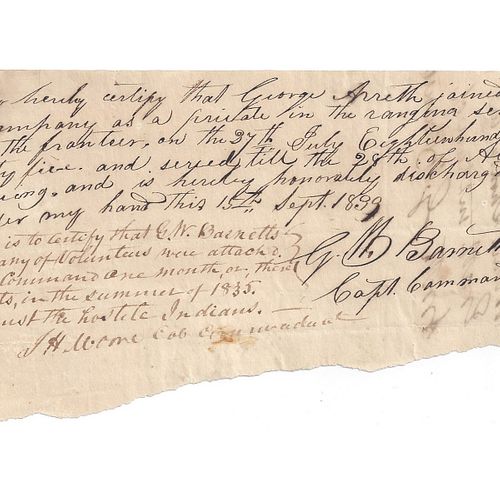 hereby certify that George Arreth joined
ompany as a private in the ranging se
the fronteer, on the 27th July Eighteenhun
ty five. and served till the 28th of A
ing, and is hereby honorably discharg
der my hand this 15th Sept. 1839
G W Barnett
Capt. Comman
is to certify that G. W. Barnetts
any of Volunteers were attachd
Command one month, or, there
ts, in the summer of 1835.
nst the hostile Indians.
J H Moore Col Commandant